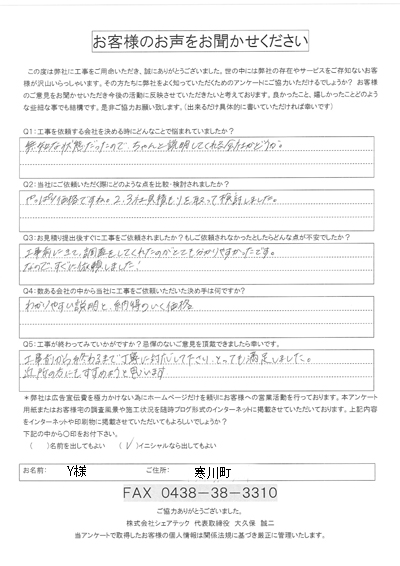 お客様のお声をお聞かせください
この度は弊社に工事をご用命いただき、誠にありがとうございました。世の中には弊社の存在やサービスをご存知ないお客
様が沢山いらっしゃいます。その方たちに弊社をよく知っていただくためのアンケートにご協力いただけるでしょうか？ お客様
のご意見をお聞かせいただき今後の活動に反映させていただきたいと考えております。良かったこと、嬉しかったことどのよう
な些細な事でも結構です。是非ご協力お願い致します。（出来るだけ具体的に書いていただければ幸いです）
Q1：工事を依頼する会社を決める時にどんなことで悩まれていましたか？
無知な状態だったので、ちゃんと説明してくれる会社かどうか。
Q2：当社にご依頼いただく際にどのような点を比較・検討されましたか？
やっぱり価格ですね。2、3社見積もりを取って検討しました。
Q3：お見積り提出後すぐに工事をご依頼されましたか？もしご依頼されなかったとしたらどんな点が不安でしたか？
工事前にきて、調査をしてくれたのがとても分かりやすかったです。
なので、すぐに依頼しました！
Q4：数ある会社の中から当社に工事をご依頼いただいた決め手は何ですか？
わかりやすい説明と、納得のいく価格
Q5：工事が終わってみていかがですか？忌憚のないご意見を頂戴できましたら幸いです。
工事前から終わるまで丁寧に対応して下さり、とっても満足しました。
近所の方にもすすめようと思います
＊弊社は広告宣伝費を極力かけない為にホームページだけを頼りにお客様への営業活動を行っております。本アンケート
用紙またはお客様宅の調査風景や施工状況を随時ブログ形式のインターネットに掲載させていただいております。上記内容
をインターネットや印刷物に掲載させていただいてもよろしいでしょうか？
下記の中から〇印をお付下さい。
（ ）名前を出してもよい （✓）イニシャルなら出してもよい
お名前： Y様 ご住所： 寒川町
FAX 0438-38-3310
ご協力ありがとうございました。
株式会社シェアテック 代表取締役 大久保 誠二
当アンケートで取得したお客様の個人情報は関係法規に基づき厳正に管理いたします。